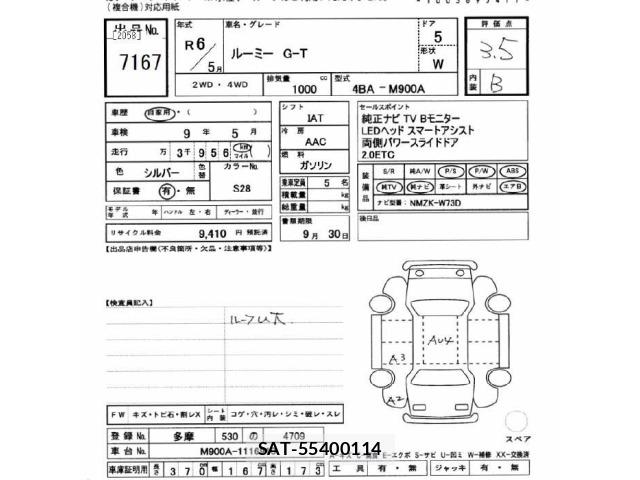 (複合機)対応用紙
出品 No.
[2058]
7167
年式
R6/5月
車名・グレード
ルーミー G-T
ドア
5
形状
W
評価点
3.5
内装
B
2WD・4WD
排気量
1000 cc
型式
4BA - M900A
車歴 自家用・( )
車検 9年 5月
走行 万3千956 km マイル
色 シルバー
色替
カラーNo.
S28
保証書 有・無
シフト
IAT
冷房
AAC
燃料
ガソリン
乗車定員 5 名
積載量 kg
総重量 kg
書類期限
9月 30日
セールスポイント
純正ナビ TV Bモニター
LEDヘッド スマートアシスト
両側パワースライドドア
2.0ETC
装備品
S/R 純A/W P/S P/W ABS
純TV 純ナビ 革シート 外ナビ エアB
ナビ型番: NMZK-W73D
後日品
モデル年式 年 ハンドル 左・右 ディーラー・並行
リサイクル料金 9,410 円 預託済
【出品店申告欄(不良箇所・欠品・注意事項等)】
【検査員記入】
ルーフUス
AU4
A3
A2
FW キズ・トビ石・割レX シート内装 コゲ・穴・汚レ・シミ・破レ・スレ
スペア
登録 No. 多摩 530 の 4709
車台 No. M900A-1116
SAT-55400114
E-エクボ S-サビ U-凹ミ W-補修 XX-交換済
車庫証明用 長さ 370 幅 167 高さ 173 工具 有・無 ジャッキ 有・無